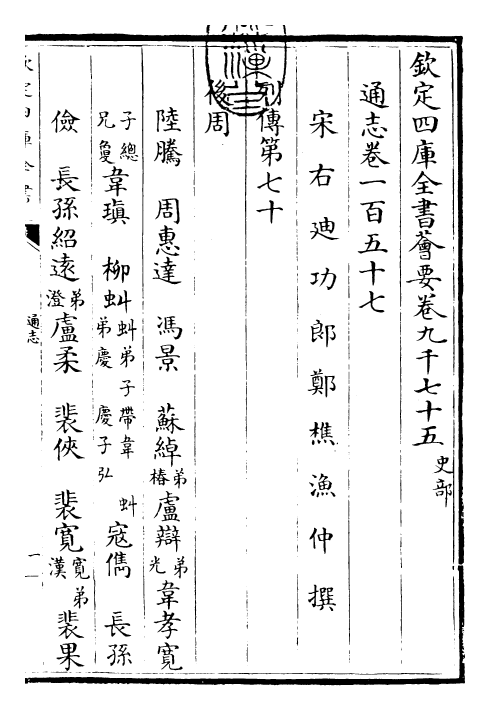 欽定四庫全書薈要卷九千七十五 史部
通志卷一百五十七
宋右廸功郎鄭樵漁仲撰
列傳第七十
後周
陸騰 周惠達 馮景 蘇綽弟椿盧辯弟光韋孝寬
子總兄敻韋瑱 柳蚪蚪弟子帶韋 蚪弟慶 慶子弘 寇儁 長孫
儉 長孫紹遠弟澄盧柔 裴俠 裴寬寬弟漢 裴果
通志
一